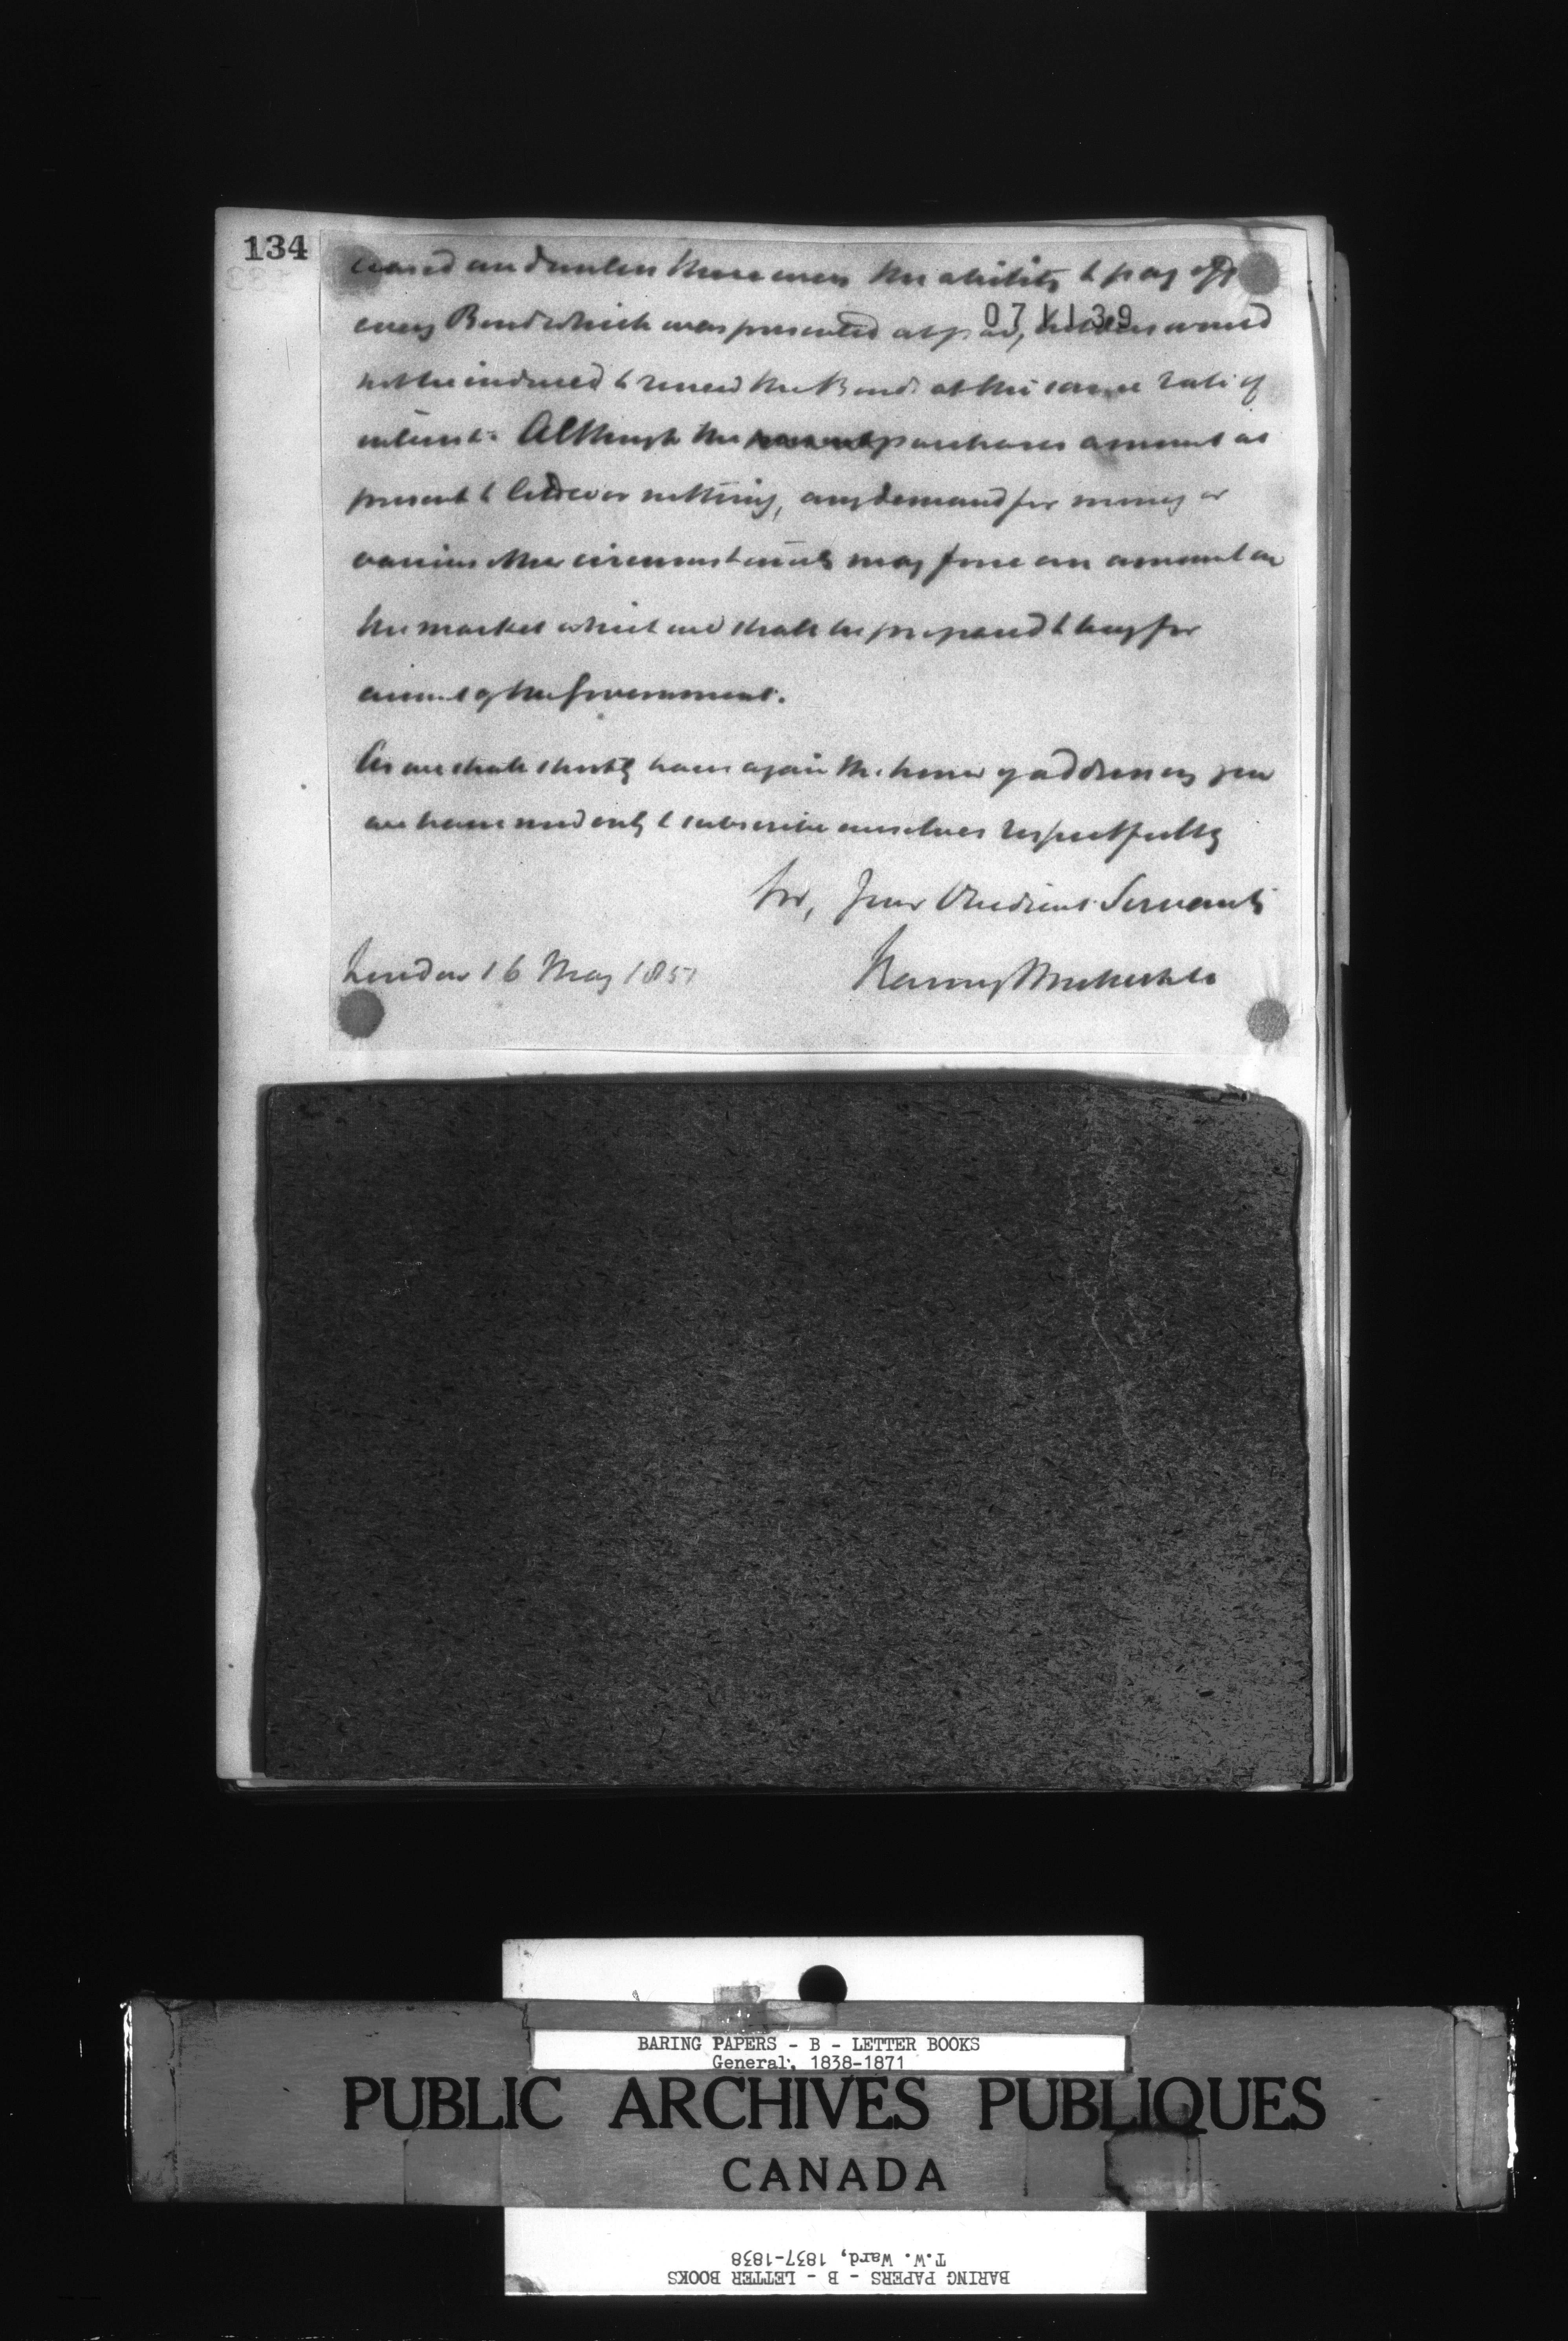 134
ceased and unless there were the ability to pay off
071139
every Bond which was presented at par, holders would
not be induced to renew the Bonds at the same rate of
interest. Although the purchases amount at
present to little or nothing, any demand for money or
various other circumstances may force an amount on
the market which we shall be prepared to buy for
account of the Government.
As we shall shortly have again the honor of addressing you
we have need only to subscribe ourselves respectfully
Sir, Your Obedient Servants
London 16 May 1851
Baring Brothers & Co
BARING PAPERS - B - LETTER BOOKS
General, 1838-1871
PUBLIC ARCHIVES PUBLIQUES
CANADA
BARING PAPERS - B - LETTER BOOKS
T.W. Ward, 1837-1838